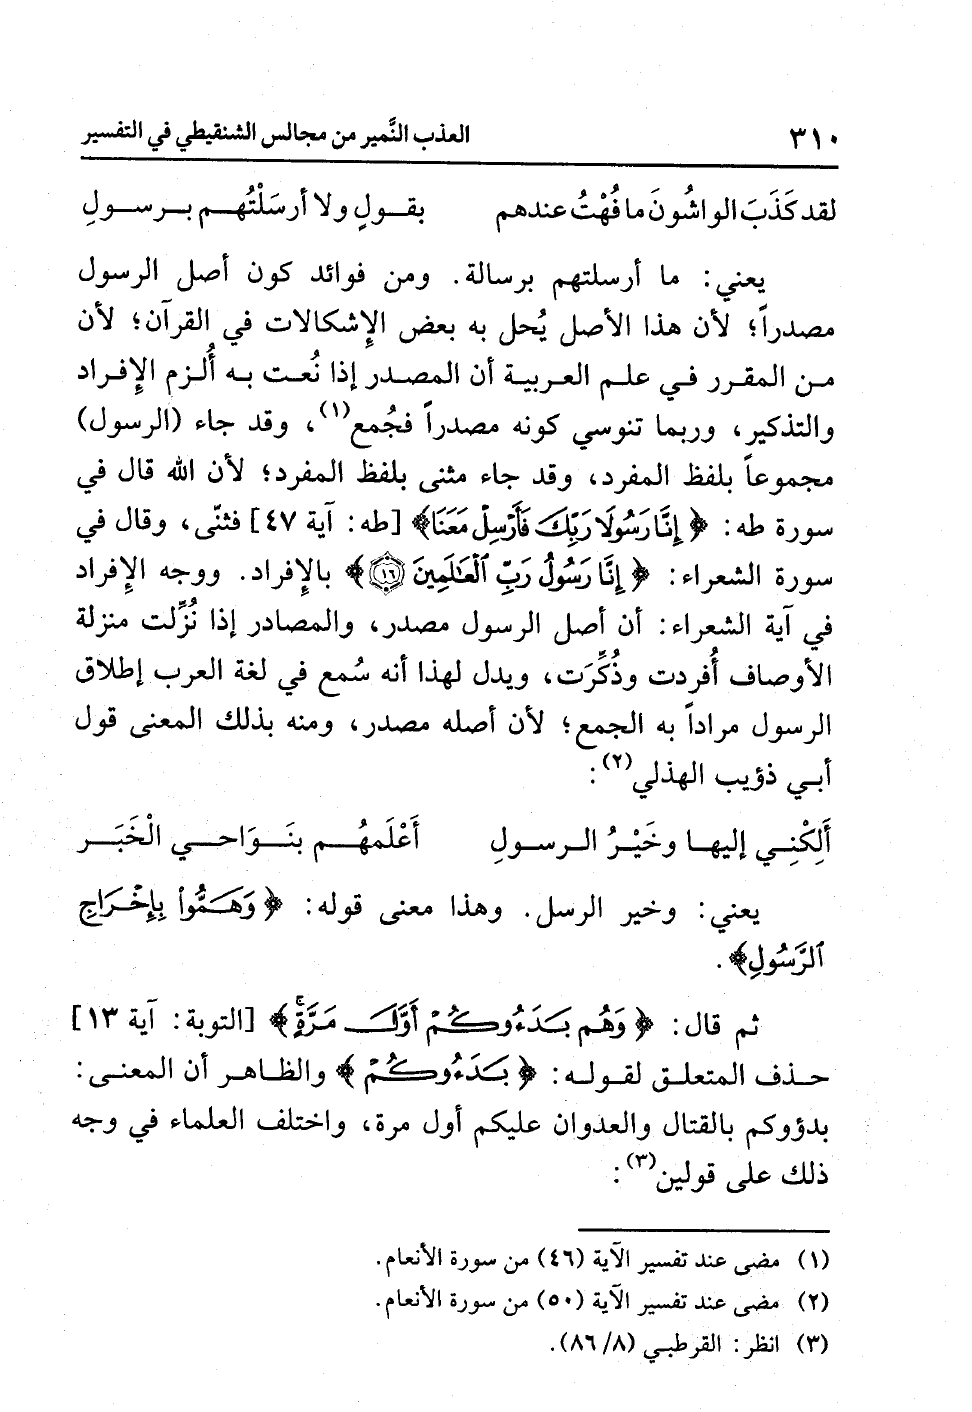 ٣١٠ العذب النَّمير من مجالس الشنقيطي في التفسير
لقد كَذَبَ الواشُونَ ما فُهْتُ عندهم بقــولٍ ولا أرسَلْتُهــم بــرســولِ
يعني: ما أرسلتهم برسالة. ومن فوائد كون أصل الرسول
مصدراً؛ لأن هذا الأصل يُحل به بعض الإشكالات في القرآن؛ لأن
من المقرر في علم العربية أن المصدر إذا نُعت به أُلزم الإفراد
والتذكير، وربما تنوسي كونه مصدراً فجُمع(١)، وقد جاء (الرسول)
مجموعاً بلفظ المفرد، وقد جاء مثنى بلفظ المفرد؛ لأن الله قال في
سورة طه: ﴿إِنَّا رَسُولَا رَبِّكَ فَأَرْسِلْ مَعَنَا﴾ [طه: آية ٤٧] فثنّى، وقال في
سورة الشعراء: ﴿إِنَّا رَسُولُ رَبِّ ٱلْعَٰلَمِينَ ١٦﴾ بالإفراد. ووجه الإفراد
في آية الشعراء: أن أصل الرسول مصدر، والمصادر إذا نُزِّلت منزلة
الأوصاف أُفردت وذُكِّرَت، ويدل لهذا أنه سُمع في لغة العرب إطلاق
الرسول مراداً به الجمع؛ لأن أصله مصدر، ومنه بذلك المعنى قول
أبي ذؤيب الهذلي(٢):
أَلِكْنِــي إليهــا وخَيْــرُ الــرســولِ أَعْلَمهُــم بِنَــوَاحــي الْخَبَــر
يعني: وخير الرسل. وهذا معنى قوله: ﴿وَهَمُّوا۟ بِإِخْرَاجِ
ٱلرَّسُولِ﴾.
ثم قال: ﴿وَهُم بَدَءُوكُمْ أَوَّلَ مَرَّةٍۚ﴾ [التوبة: آية ١٣]
حذف المتعلق لقوله: ﴿بَدَءُوكُمْ﴾ والظاهر أن المعنى:
بدؤوكم بالقتال والعدوان عليكم أول مرة، واختلف العلماء في وجه
ذلك على قولين(٣):
(١) مضى عند تفسير الآية (٤٦) من سورة الأنعام.
(٢) مضى عند تفسير الآية (٥٠) من سورة الأنعام.
(٣) انظر: القرطبي (٨/ ٨٦).